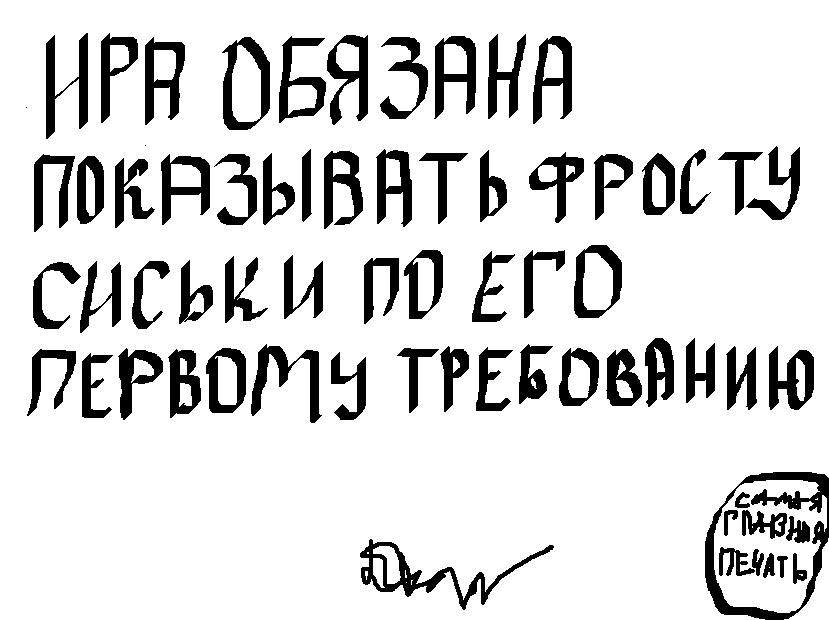 ИРА ОБЯЗАНА
ПОКАЗЫВАТЬ ФРОСТУ
СИСЬКИ ПО ЕГО
ПЕРВОМУ ТРЕБОВАНИЮ
САМАЯ
ГЛАВНАЯ
ПЕЧАТЬ